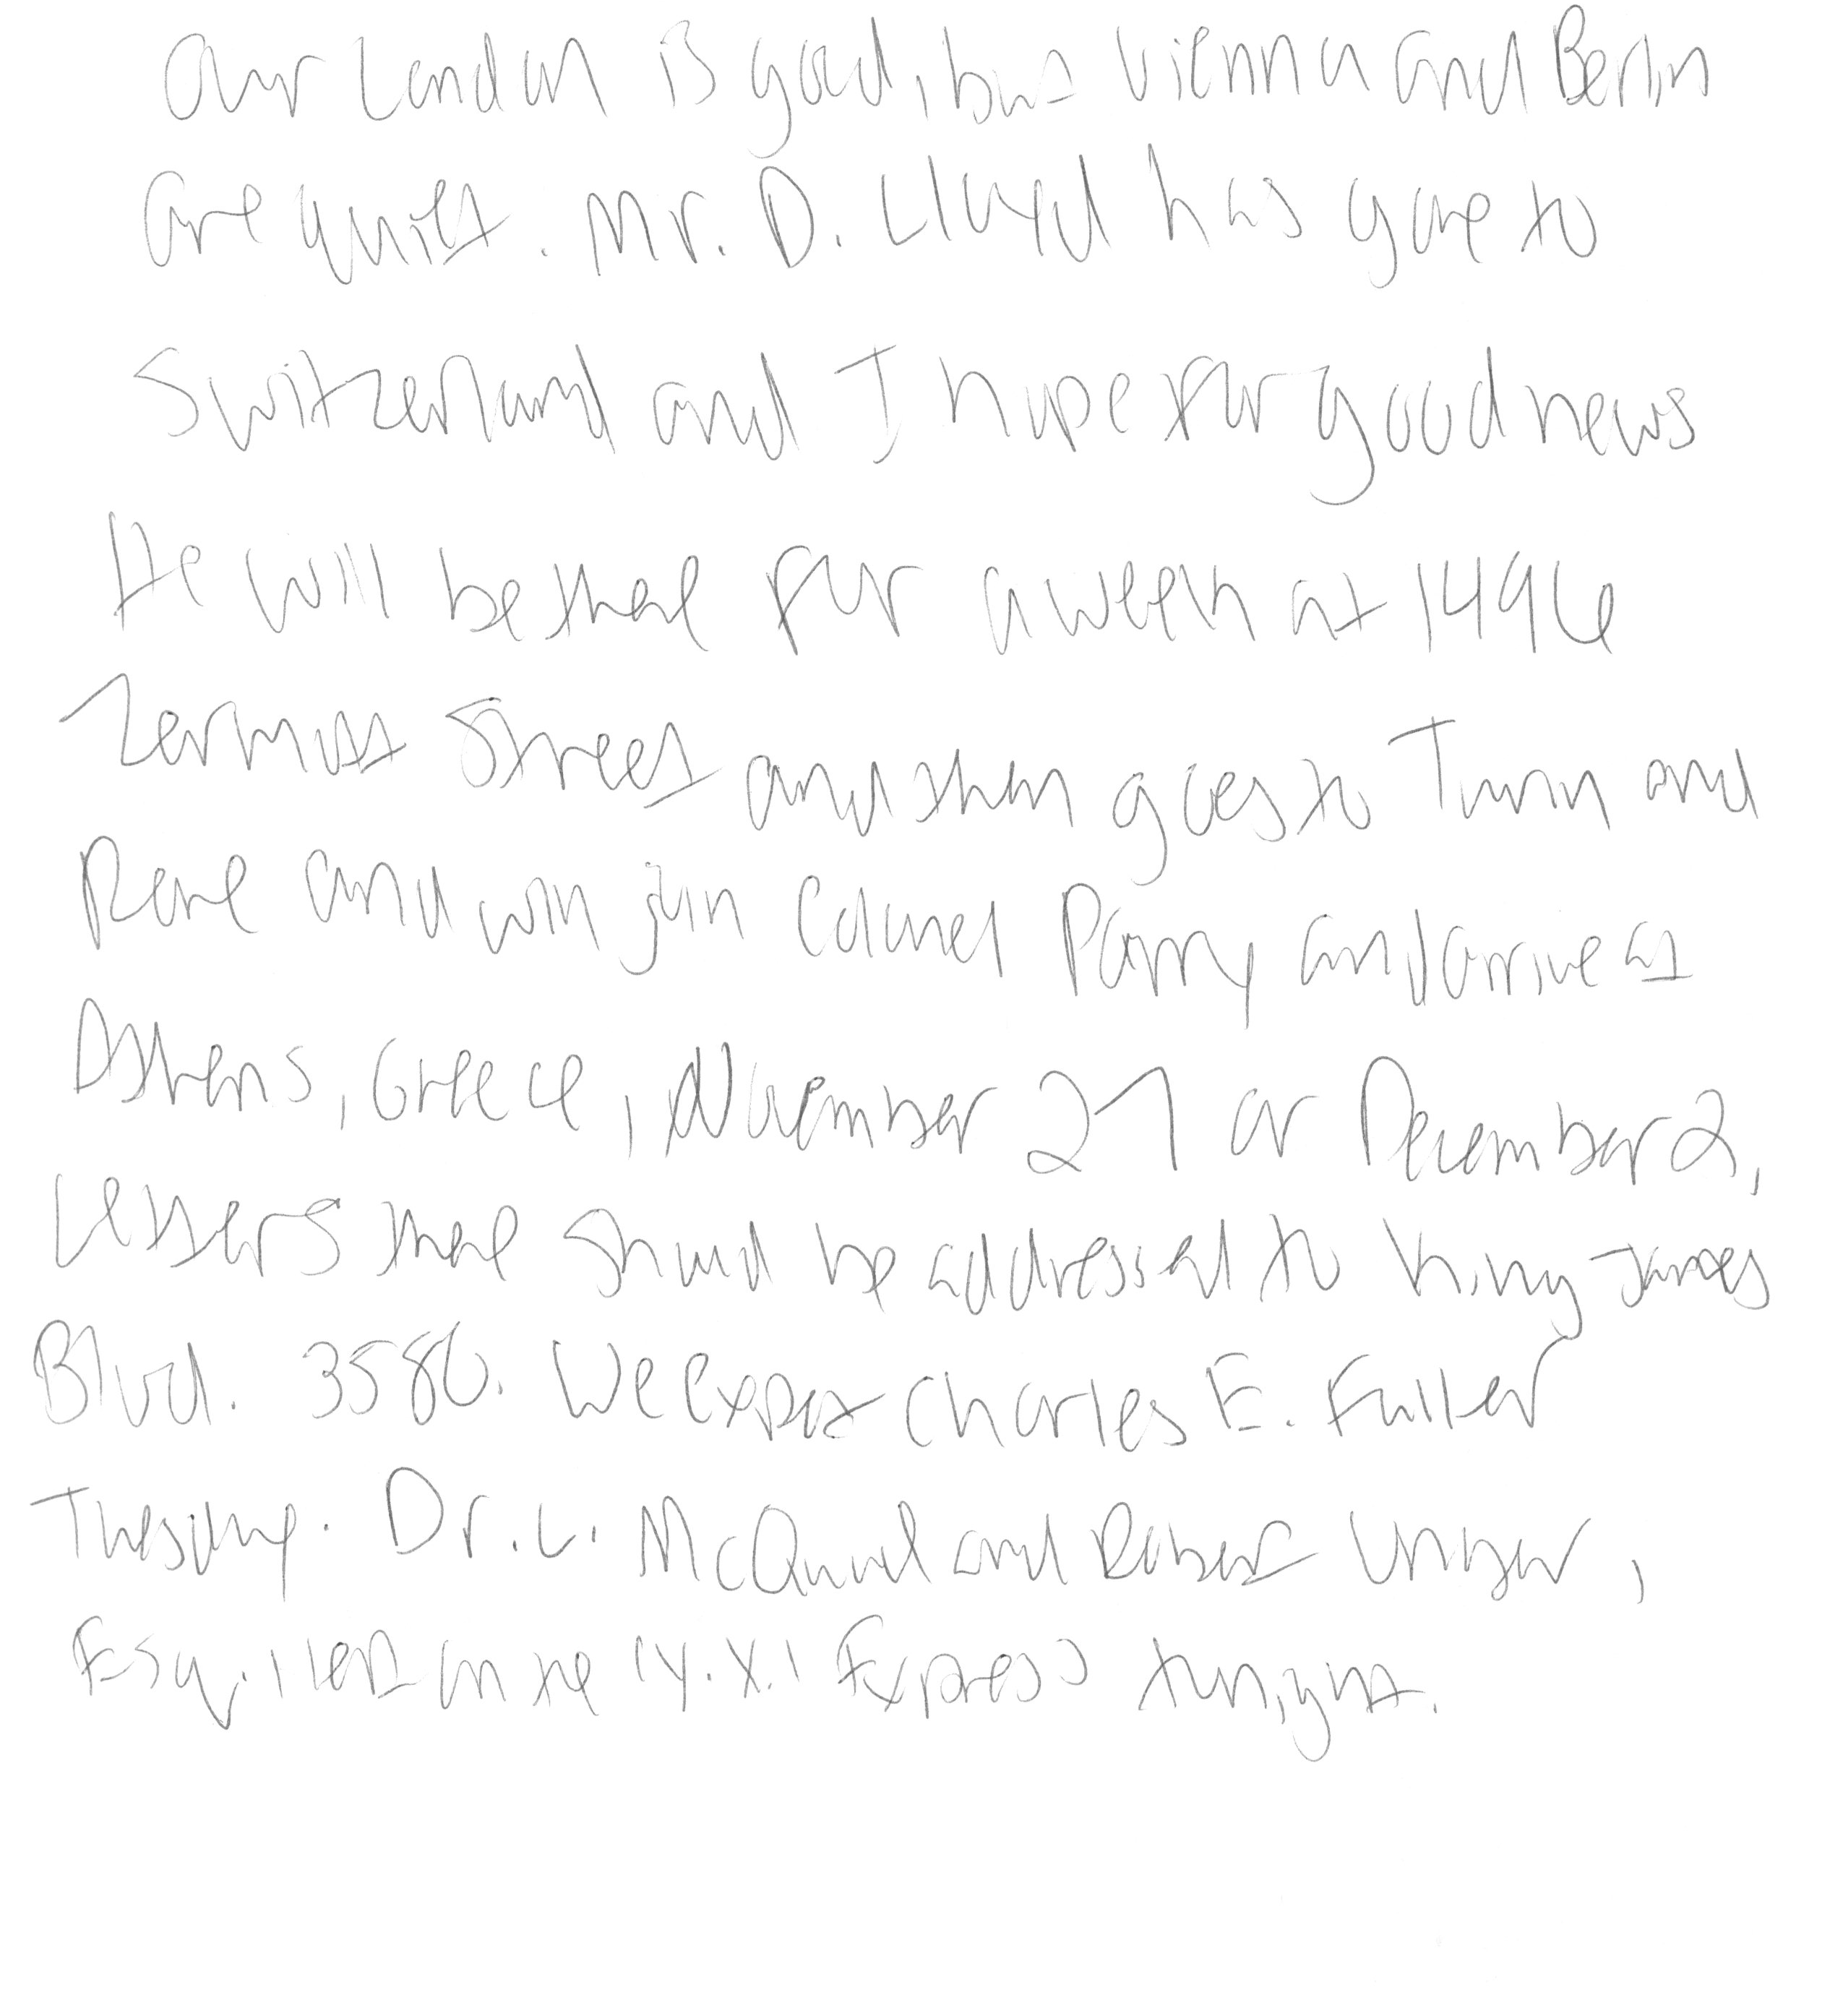 Our London is good, but Vienna and Berlin
are quiet. Mr. D. Lloyd has gone to
Switzerland and I hope for good news
He will be there for a week at 1496
Zermott Street and then goes to Turin and
Rome and will join Colonel Parry and arrive at
Athens, Greece, November 27 or December 2.
Letters there should be addressed to King James
Blvd. 3580. We expect Charles E. Fuller
Tuesday. Dr. L. McQuaid and Robert Unger,
Esq., left on the "Y.X." Express tonight.